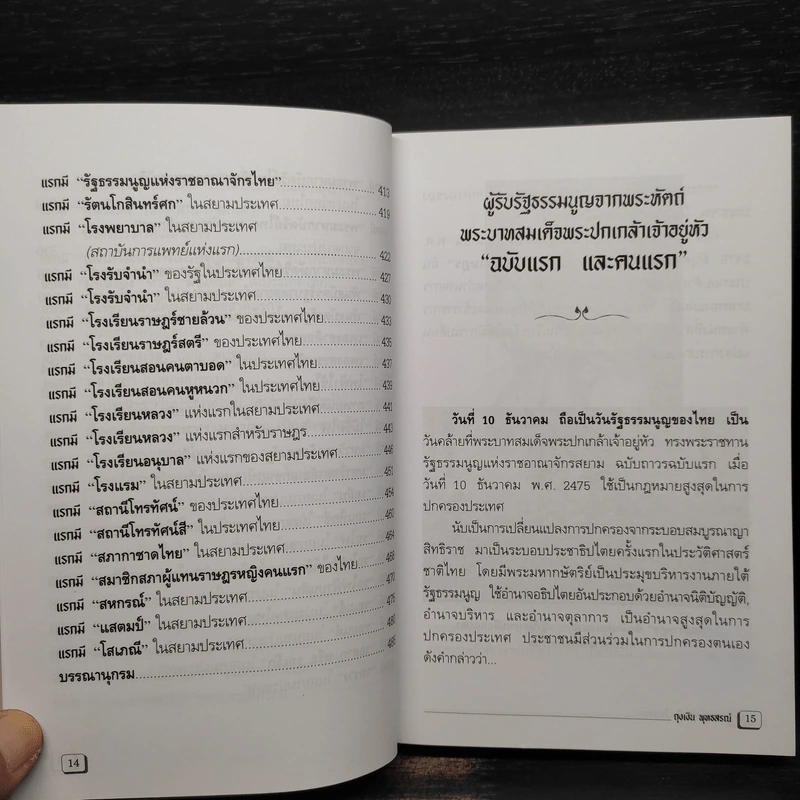 แรกมี “รัฐธรรมนูญแห่งราชอาณาจักรไทย”........413
แรกมี “รัตนโกสินทร์ศก” ในสยามประเทศ........419
แรกมี “โรงพยาบาล” ในสยามประเทศ
(สถาบันการแพทย์แห่งแรก)........422
แรกมี “โรงรับจำนำ” ของรัฐในประเทศไทย........427
แรกมี “โรงรับจำนำ” ในสยามประเทศ........430
แรกมี “โรงเรียนราษฎร์ชายล้วน” ของประเทศไทย........433
แรกมี “โรงเรียนราษฎร์สตรี” ของประเทศไทย........435
แรกมี “โรงเรียนสอนคนตาบอด” ในประเทศไทย........437
แรกมี “โรงเรียนสอนคนหูหนวก” ในประเทศไทย........439
แรกมี “โรงเรียนหลวง” แห่งแรกในสยามประเทศ........441
แรกมี “โรงเรียนหลวง” แห่งแรกสำหรับราษฎร........443
แรกมี “โรงเรียนอนุบาล” แห่งแรกของสยามประเทศ........446
แรกมี “โรงแรม” ในสยามประเทศ........451
แรกมี “สถานีโทรทัศน์” ของประเทศไทย........454
แรกมี “สถานีโทรทัศน์สี” ในประเทศไทย........460
แรกมี “สภากาชาดไทย” ในสยามประเทศ........464
แรกมี “สมาชิกสภาผู้แทนราษฎรหญิงคนแรก” ของไทย........468
แรกมี “สหกรณ์” ในสยามประเทศ........470
แรกมี “แสตมป์” ในสยามประเทศ........475
แรกมี “โสเภณี” ในสยามประเทศ........480
บรรณานุกรม........485
14
ผู้รับรัฐธรรมนูญจากพระหัตถ์
พระบาทสมเด็จพระปกเกล้าเจ้าอยู่หัว
“ฉบับแรก และคนแรก”
วันที่ 10 ธันวาคม ถือเป็นวันรัฐธรรมนูญของไทย เป็น
วันคล้ายที่พระบาทสมเด็จพระปกเกล้าเจ้าอยู่หัว ทรงพระราชทาน
รัฐธรรมนูญแห่งราชอาณาจักรสยาม ฉบับถาวรฉบับแรก เมื่อ
วันที่ 10 ธันวาคม พ.ศ. 2475 ใช้เป็นกฎหมายสูงสุดในการ
ปกครองประเทศ
นับเป็นการเปลี่ยนแปลงการปกครองจากระบอบสมบูรณาญา
สิทธิราช มาเป็นระบอบประชาธิปไตยครั้งแรกในประวัติศาสตร์
ชาติไทย โดยมีพระมหากษัตริย์เป็นประมุขบริหารงานภายใต้
รัฐธรรมนูญ ใช้อำนาจอธิปไตยอันประกอบด้วยอำนาจนิติบัญญัติ,
อำนาจบริหาร และอำนาจตุลาการ เป็นอำนาจสูงสุดในการ
ปกครองประเทศ ประชาชนมีส่วนร่วมในการปกครองตนเอง
ดังคำกล่าวว่า...
ถุงเงิน พุทธสรณ์ 15